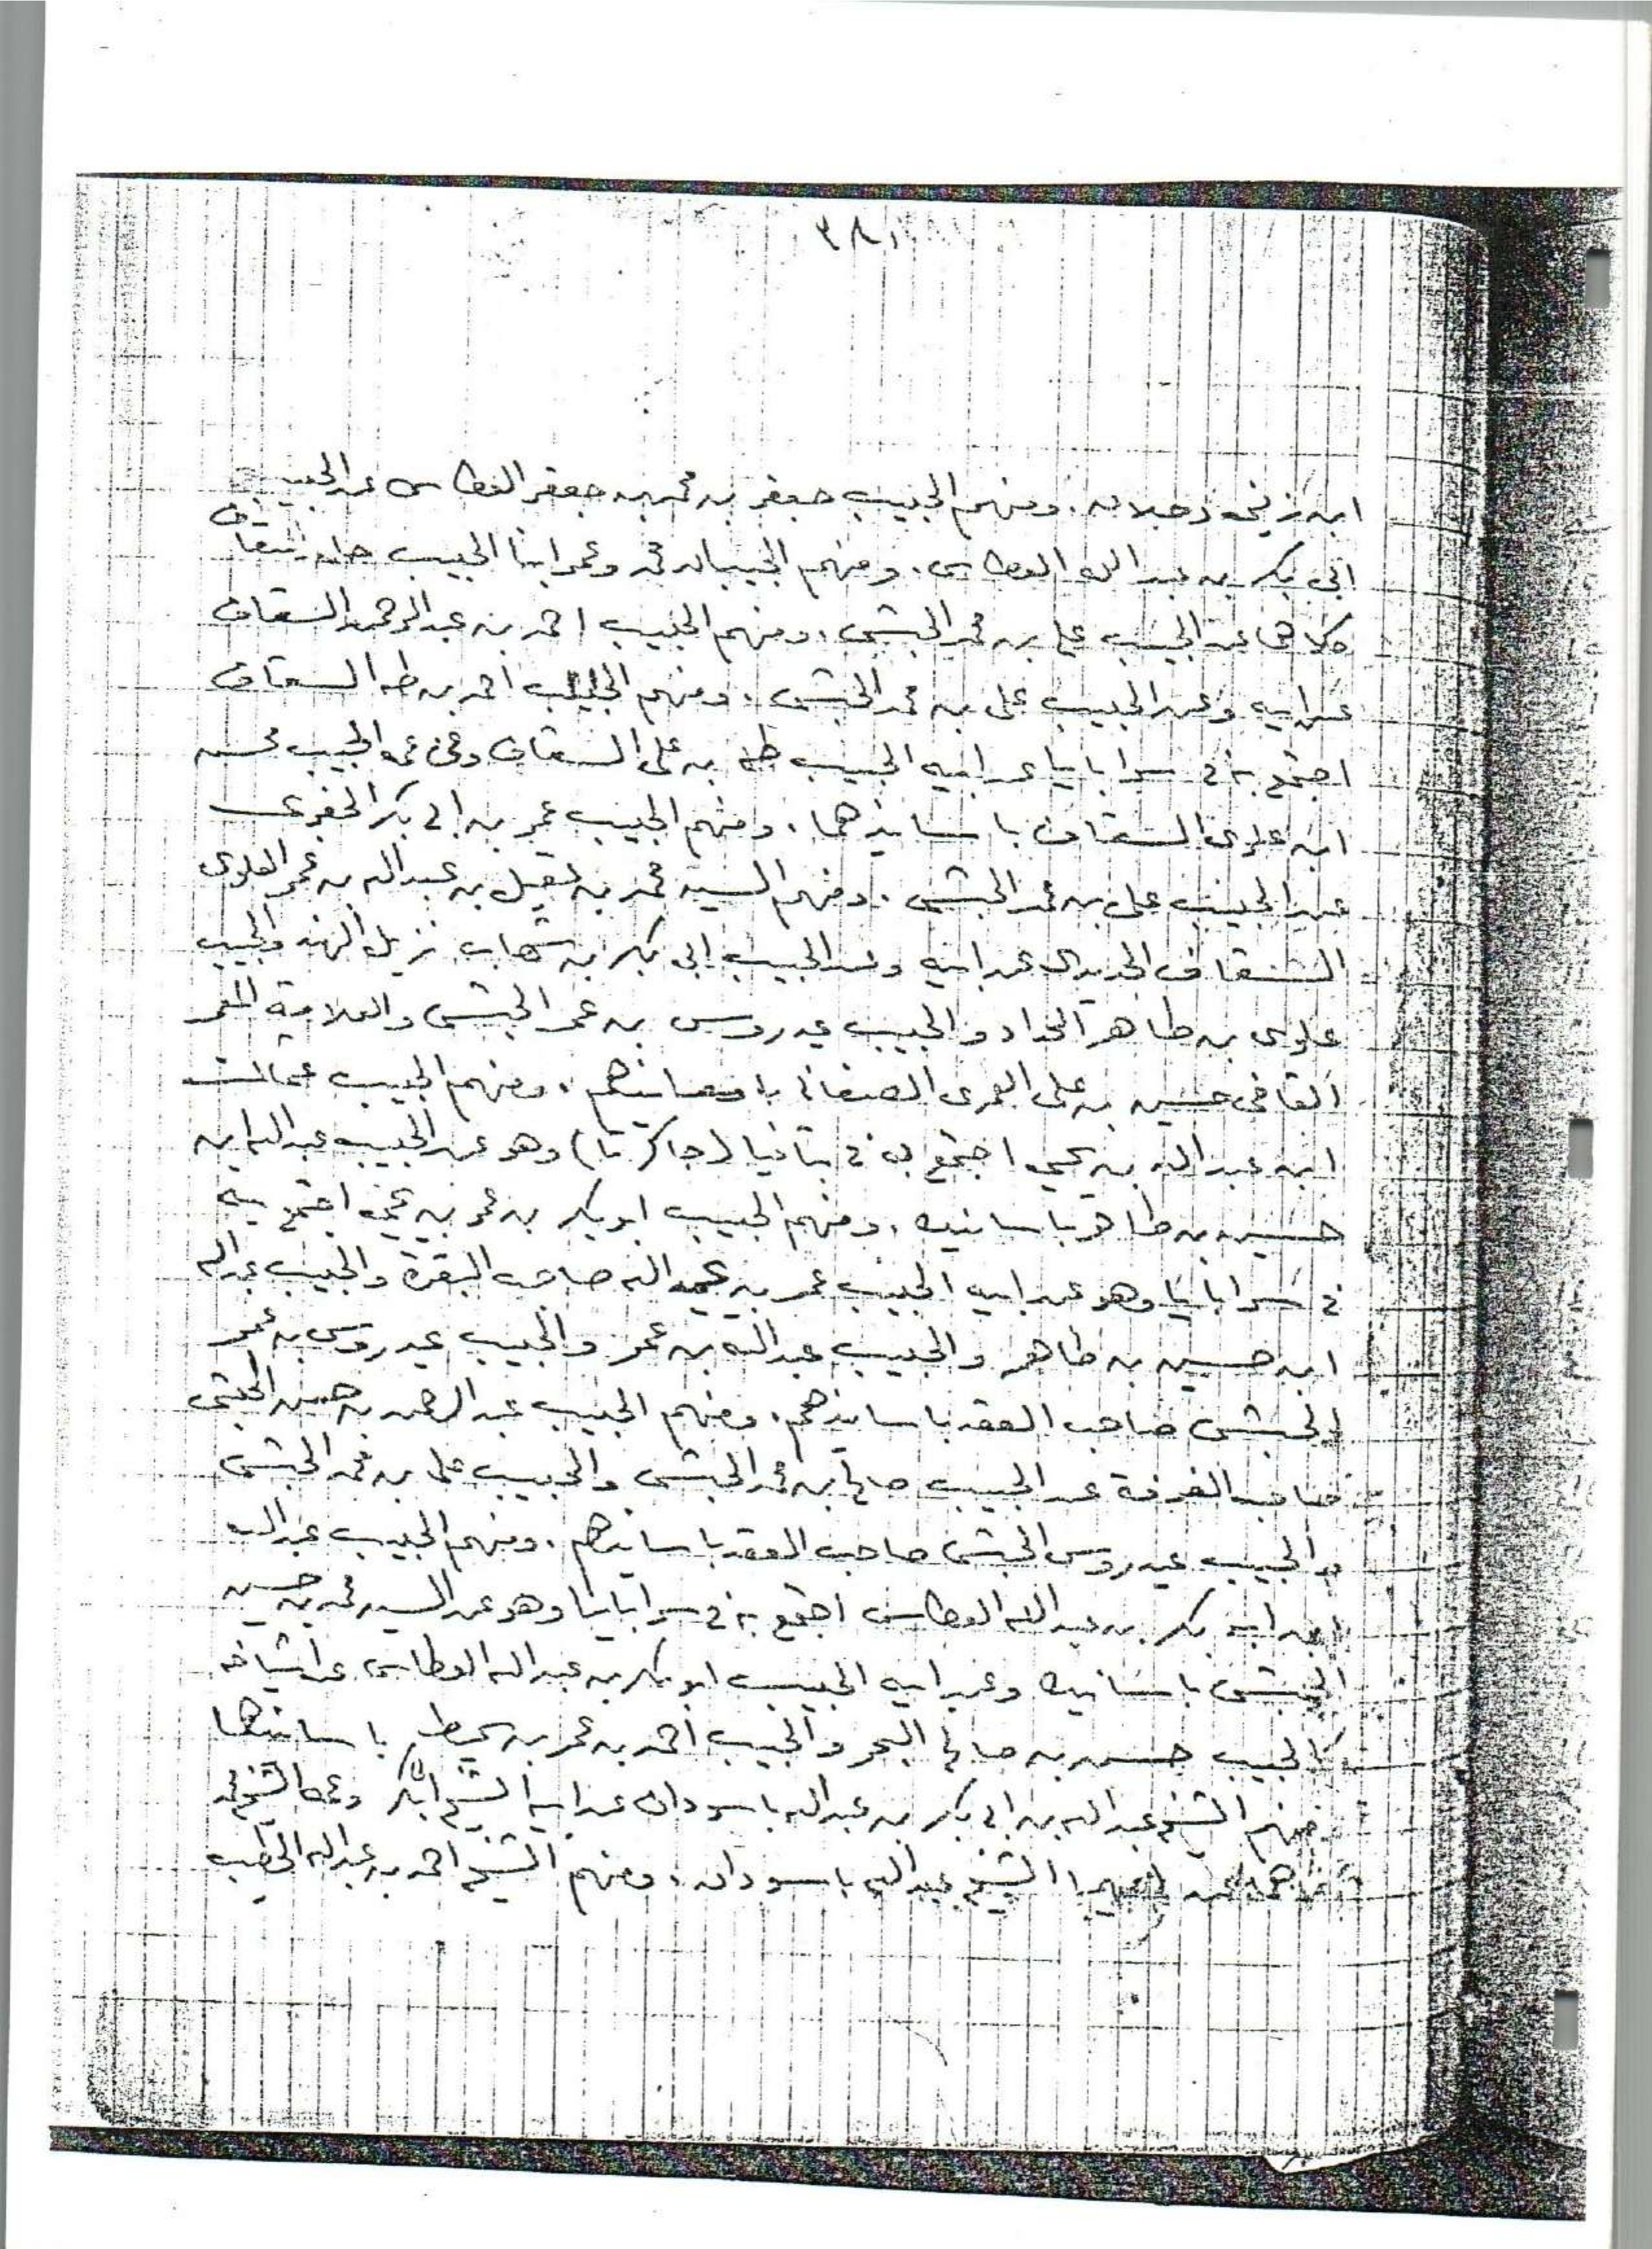 ٣٨١
ابن زيني دحلان . ومنهم الحبيب جعفر بن محمد بن جعفر العطاس عن الحبيب
ابي بكر بن عبد الله العطاس . ومنهم الحبيبان محمد وعمر ابنا الحبيب السقاف
كلاهما عن الحبيب علي بن محمد الحبشي . ومنهم الحبيب احمد بن عبد الرحمن السقاف
عن ابيه وعن الحبيب علي بن محمد الحبشي . ومنهم الحبيب احمد بن طه السقاف
اجتمع به في سرابايا عن ابيه الحبيب طه بن علي السقاف وعن عمه الحبيب محسن
ابن علوي السقاف باسانيدهما . ومنهم الحبيب عمر بن ابي بكر
عن الحبيب علي بن محمد الحبشي . ومنهم السيد محمد بن عقيل بن عبد الله بن عمر العلوي
السقاف عن ابيه وعن الحبيب ابي بكر بن شهاب نزيل الهند والحبيب
علوي بن طاهر الحداد والحبيب عيدروس بن عمر الحبشي والعلامة المعمر
القاضي حسين بن علي العمري الصنعاني باسانيدهم . ومنهم الحبيب عثمان
ابن عبد الله بن يحيى اجتمع به في بتافيا (جاكرتا) وهو عن الحبيب عبد الله ابن
حسين بن طاهر باسانيده . ومنهم الحبيب ابو بكر بن عمر بن يحيى اجتمع به
في سرابايا وهو عن ابيه الحبيب عمر بن عبد الله صاحب البقرة والحبيب عبد الله
ابن حسين بن طاهر والحبيب عبد الله بن عمر والحبيب عيدروس بن عمر
الحبشي صاحب العقد باسانيدهم . ومنهم الحبيب عبد الرحمن بن حسين الحبشي
صاحب الغرفة عن الحبيب صالح بن محمد الحبشي والحبيب علي بن محمد الحبشي
والحبيب عيدروس الحبشي صاحب العقد باسانيدهم . ومنهم الحبيب عبد الله
ابن ابي بكر بن عبد الله العطاس اجتمع به في سرابايا وهو عن السيد محمد بن حسين
الحبشي باسانيده وعن ابيه الحبيب ابو بكر بن عبد الله العطاس عن اشياخه
كالحبيب حسن بن صالح البحر والحبيب احمد بن عمر بن سميط باسانيدهما
ومنهم الشيخ عبد الله بن ابي بكر بن عبد الله باسودان عن ابيه الشيخ ابي بكر وعمه الشيخ محمد
الشيخ عبد الله باسودان . ومنهم الشيخ احمد بن عبد الله الخطيب